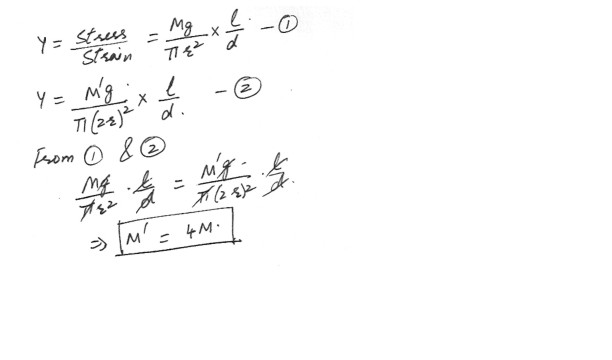 Y = Stress/Strain = Mg/πr² × l/d – ①
Y = M'g/π(2r)² × l/d. – ②
From ① & ②
Mg/πr² · l/d = M'g/π(2r)² · l/d.
⇒ M' = 4M.